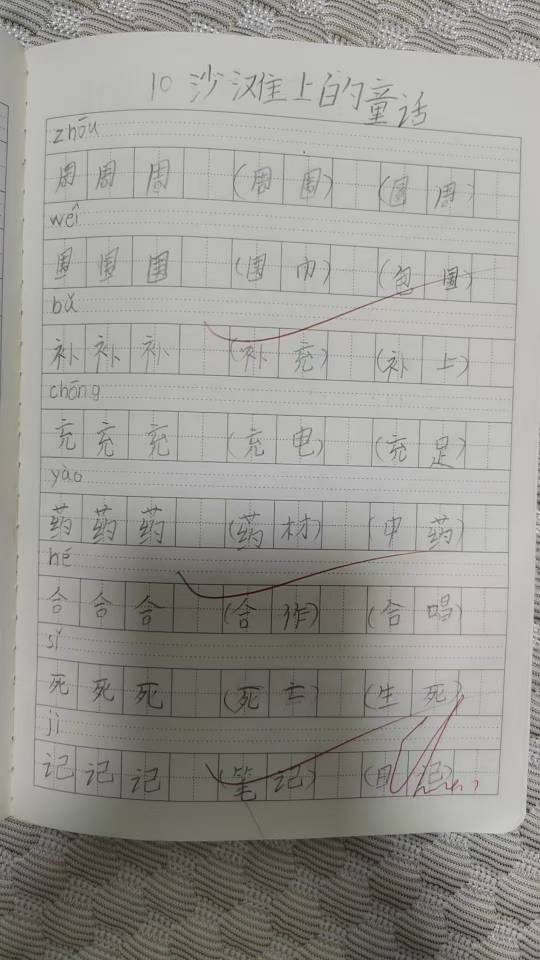 10 沙滩上的童话
zhōu
周 周 周 (周 围) (圆 周)
wéi
围 围 围 (围 巾) (包 围)
bǔ
补 补 补 (补 充) (补 上)
chōng
充 充 充 (充 电) (充 足)
yào
药 药 药 (药 材) (中 药)
hé
合 合 合 (合 作) (合 唱)
sǐ
死 死 死 (死 亡) (生 死)
jì
记 记 记 (笔 记) (日 记)